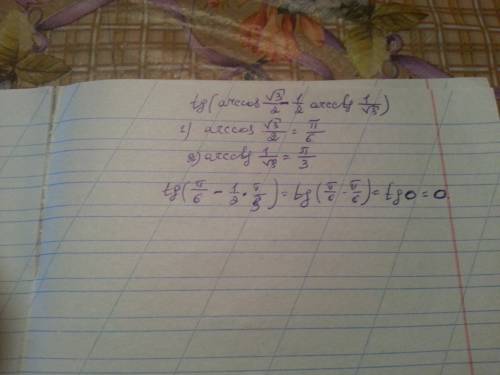 tg(arccos √3/2 - 1/2 arcctg 1/√3)
1) arccos √3/2 = π/6
2) arcctg 1/√3 = π/3
tg(π/6 - 1/2 · π/3) = tg(π/6 - π/6) = tg 0 = 0.